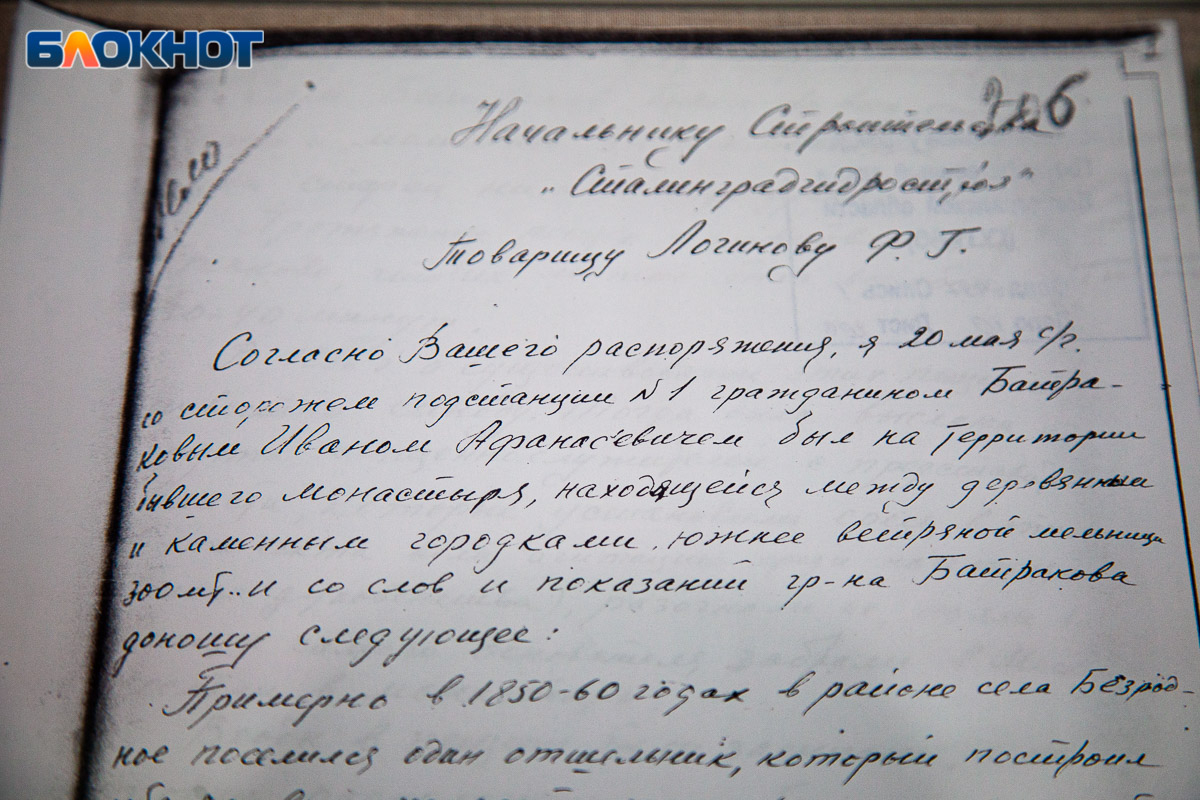 БЛОКНОТ
Начальнику Строительства
„Сталинградгидрострой"
Товарищу Логинову Ф. Г.
Согласно Вашего распоряжения, я 20 мая с/г.
со сторожем подстанции №1 гражданином Батра-
ковым Иваном Афанасьевичем был на территории
бывшего монастыря, находящейся между деревянным
и каменным городками, южнее ветряной мельницы
300 мт. и со слов и показаний гр-на Батракова
доношу следующее:
Примерно в 1850-60 годах в районе села Безрод-
ное поселился один отшельник, который построил